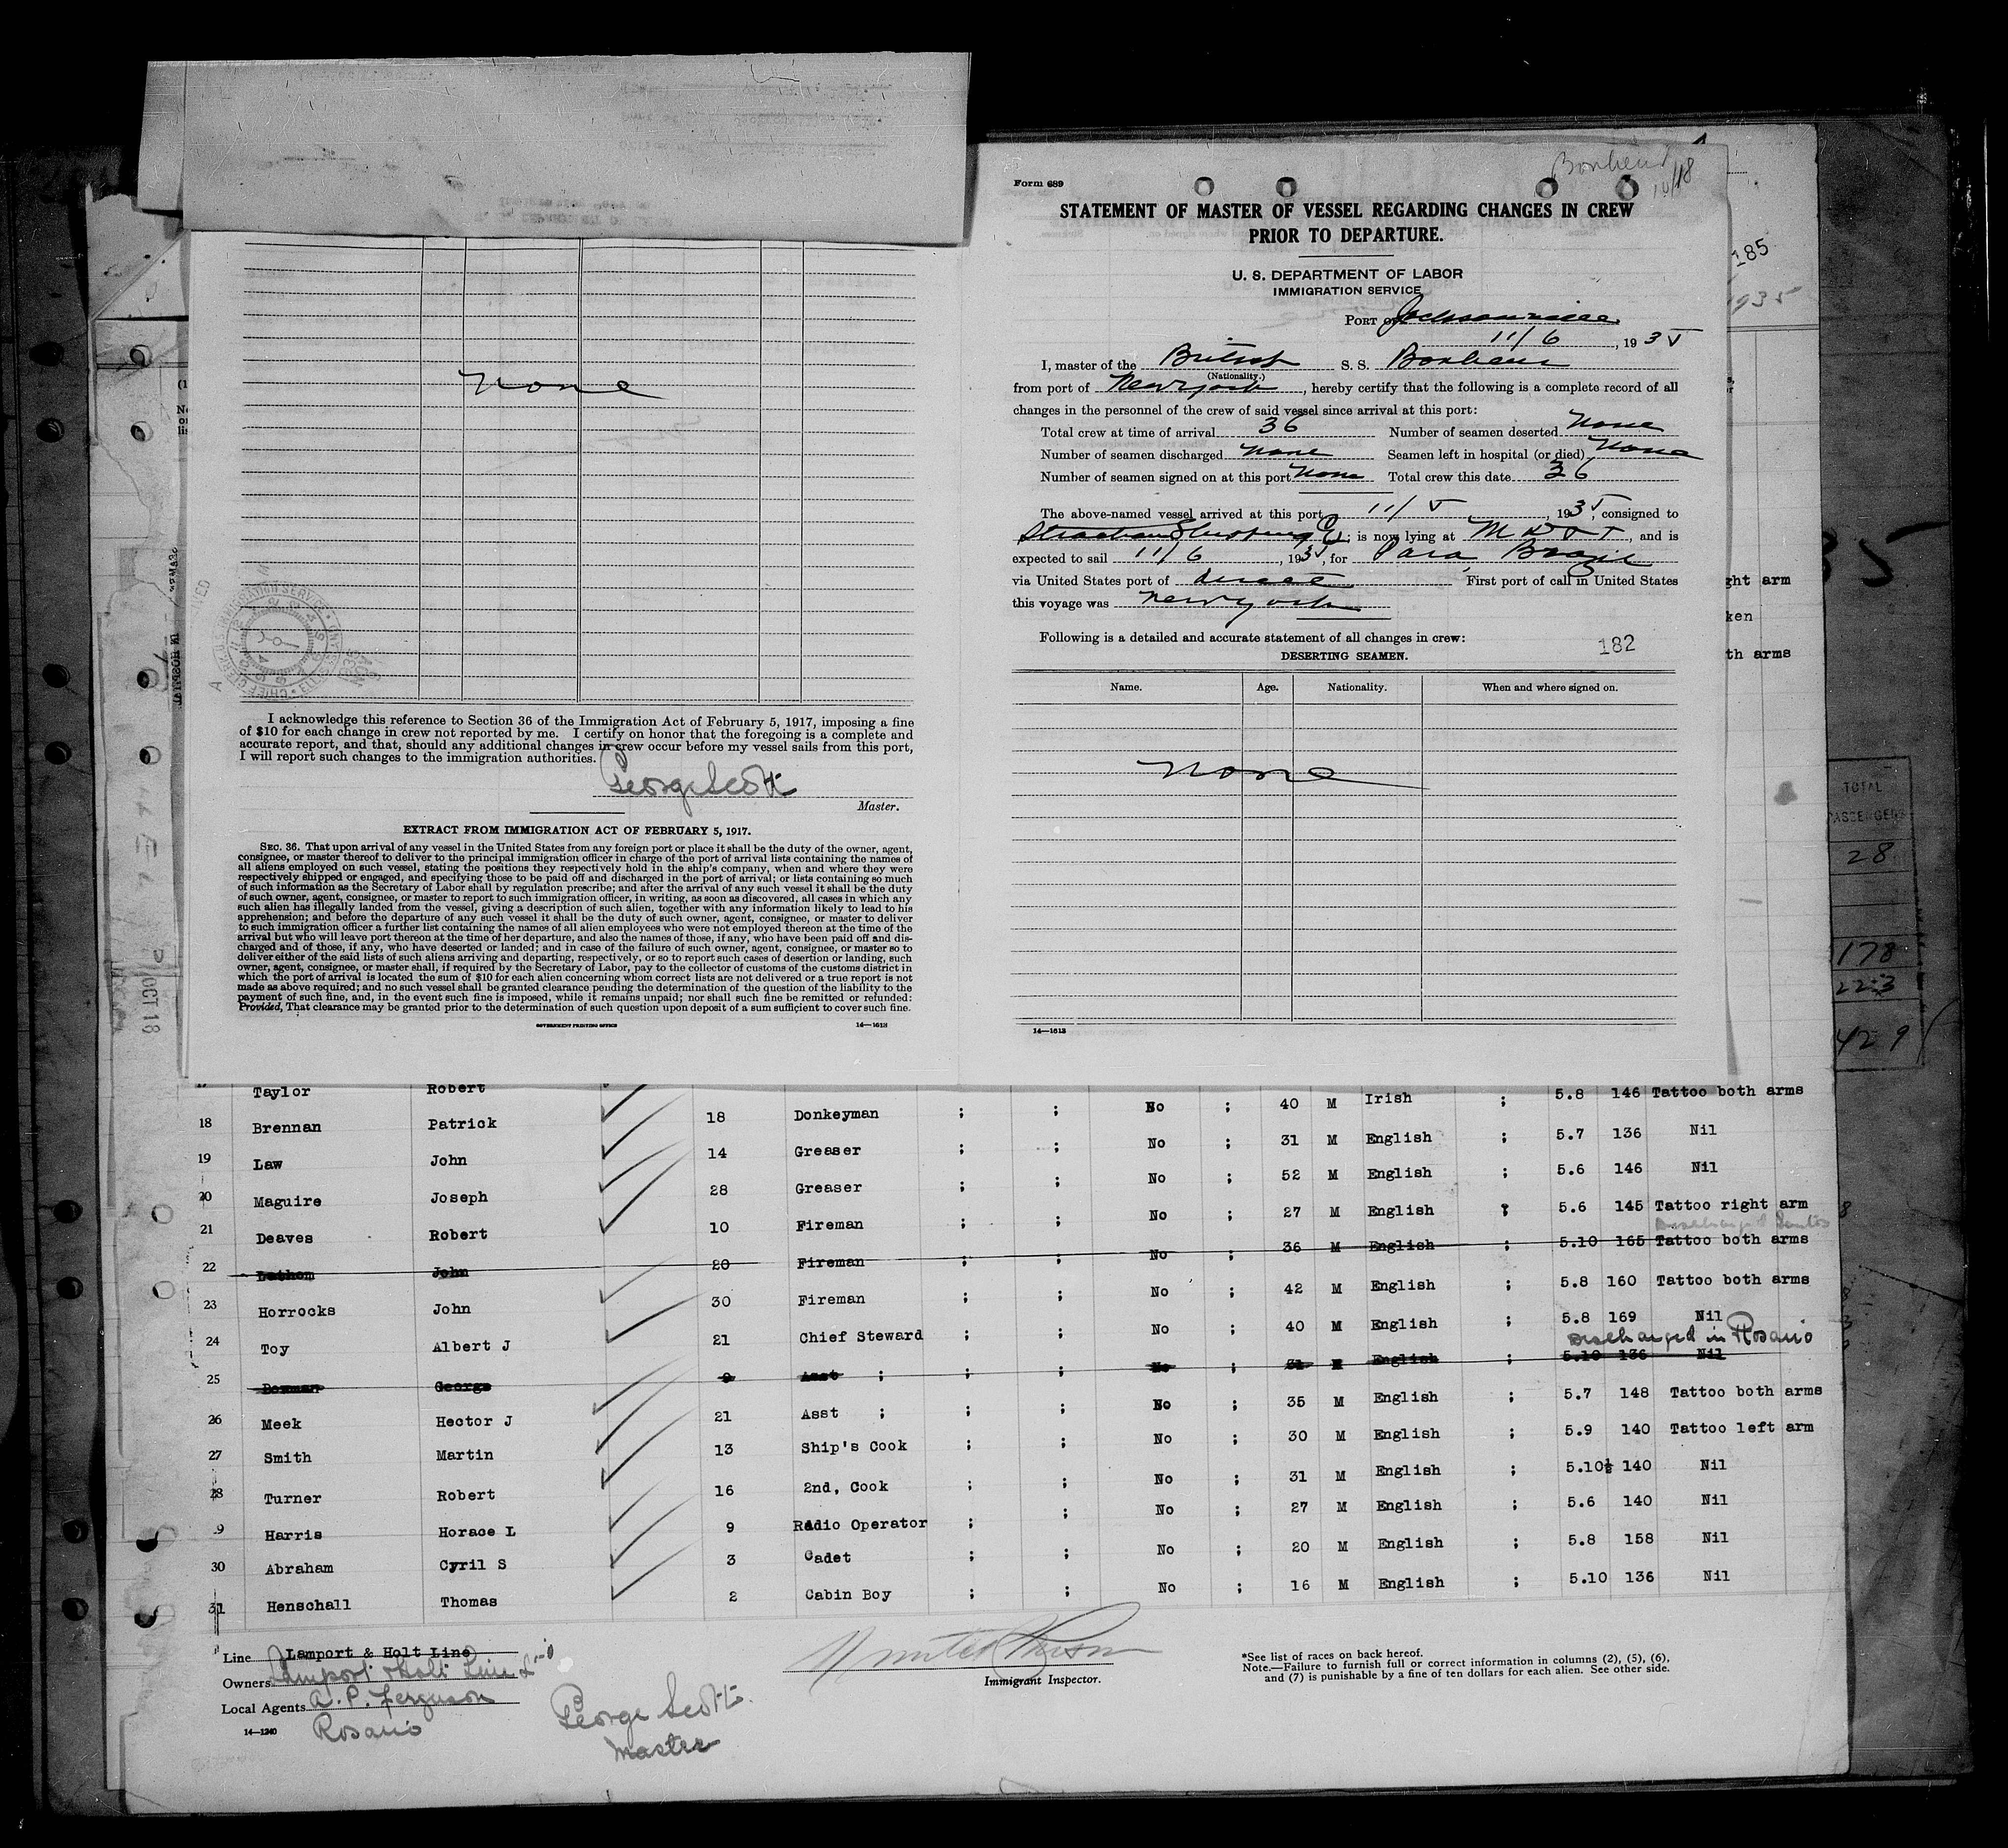 none
I acknowledge this reference to Section 36 of the Immigration Act of February 5, 1917, imposing a fine
of $10 for each change in crew not reported by me. I certify on honor that the foregoing is a complete and
accurate report, and that, should any additional changes in crew occur before my vessel sails from this port,
I will report such changes to the immigration authorities.
George Scott
Master.
EXTRACT FROM IMMIGRATION ACT OF FEBRUARY 5, 1917.
SEC. 36. That upon arrival of any vessel in the United States from any foreign port or place it shall be the duty of the owner, agent,
consignee, or master thereof to deliver to the principal immigration officer in charge of the port of arrival lists containing the names of
all aliens employed on such vessel, stating the positions they respectively hold in the ship's company, when and where they were
respectively shipped or engaged, and specifying those to be paid off and discharged in the port of arrival; or lists containing so much
of such information as the Secretary of Labor shall by regulation prescribe; and after the arrival of any such vessel it shall be the duty
of such owner, agent, consignee, or master to report to such immigration officer, in writing, as soon as discovered, all cases in which any
such alien has illegally landed from the vessel, giving a description of such alien, together with any information likely to lead to his
apprehension; and before the departure of any such vessel it shall be the duty of such owner, agent, consignee, or master to deliver
to such immigration officer a further list containing the names of all alien employees who were not employed thereon at the time of the
arrival but who will leave port thereon at the time of her departure, and also the names of those, if any, who have been paid off and dis-
charged and of those, if any, who have deserted or landed; and in case of the failure of such owner, agent, consignee, or master so to
deliver either of the said lists of such aliens arriving and departing, respectively, or so to report such cases of desertion or landing, such
owner, agent, consignee, or master shall, if required by the Secretary of Labor, pay to the collector of customs of the customs district in
which the port of arrival is located the sum of $10 for each alien concerning whom correct lists are not delivered or a true report is not
made as above required; and no such vessel shall be granted clearance pending the determination of the question of the liability to the
payment of such fine, and, in the event such fine is imposed, while it remains unpaid; nor shall such fine be remitted or refunded:
Provided, That clearance may be granted prior to the determination of such question upon deposit of a sum sufficient to cover such fine.
GOVERNMENT PRINTING OFFICE 14—1613
Bonheur
10/18
Form 689
STATEMENT OF MASTER OF VESSEL REGARDING CHANGES IN CREW
PRIOR TO DEPARTURE.
U. S. DEPARTMENT OF LABOR
IMMIGRATION SERVICE
PORT OF Jacksonville
11/6, 1935
I, master of the British S. S. Bonheur
(Nationality.)
from port of New York, hereby certify that the following is a complete record of all
changes in the personnel of the crew of said vessel since arrival at this port:
Total crew at time of arrival 36 Number of seamen deserted None
Number of seamen discharged None Seamen left in hospital (or died) None
Number of seamen signed on at this port None Total crew this date 36
The above-named vessel arrived at this port 11/5, 1935, consigned to
Strachan Shipping Co; is now lying at M D & T, and is
expected to sail 11/6, 1935, for Para, Brazil
via United States port of direct First port of call in United States
this voyage was New York
Following is a detailed and accurate statement of all changes in crew:
182
DESERTING SEAMEN.
Name. Age. Nationality. When and where signed on.
none
14—1613
185
1935
35
ght arm
ken
th arms
TOTAL
PASSENGERS
28
178
223
429
OCT 18
Taylor Robert 18 Donkeyman ; ; No ; 40 M Irish ; 5.8 146 Tattoo both arms
18 Brennan Patrick 14 Greaser ; ; No ; 31 M English ; 5.7 136 Nil
19 Law John 28 Greaser ; ; No ; 52 M English ; 5.6 146 Nil
20 Maguire Joseph 10 Fireman ; ; No ; 27 M English ; 5.6 145 Tattoo right arm
Discharged Santos
21 Deaves Robert 20 Fireman ; ; No ; 36 M English ; 5.10 165 Tattoo both arms
22 Lathom John 30 Fireman ; ; No ; 42 M English ; 5.8 160 Tattoo both arms
23 Horrocks John 21 Chief Steward ; ; No ; 40 M English ; 5.8 169 Nil
Discharged in Rosario
24 Toy Albert J 9 Asst ; ; ; No ; 31 M English ; 5.10 136 Nil
25 Bowman George 21 Asst ; ; ; No ; 35 M English ; 5.7 148 Tattoo both arms
26 Meek Hector J 13 Ship's Cook ; ; No ; 30 M English ; 5.9 140 Tattoo left arm
27 Smith Martin 16 2nd, Cook ; ; No ; 31 M English ; 5.10½ 140 Nil
28 Turner Robert 9 Radio Operator ; ; No ; 27 M English ; 5.6 140 Nil
29 Harris Horace L 3 Cadet ; ; No ; 20 M English ; 5.8 158 Nil
30 Abraham Cyril S 2 Cabin Boy ; ; No ; 16 M English ; 5.10 136 Nil
31 Henschall Thomas
Line Lamport & Holt Line
Owners Lamport & Holt Line Ltd
Local Agents A. P. Ferguson
14—1240 Rosario
George Scott
Master
Immigrant Inspector.
*See list of races on back hereof.
Note.—Failure to furnish full or correct information in columns (2), (5), (6),
and (7) is punishable by a fine of ten dollars for each alien. See other side.